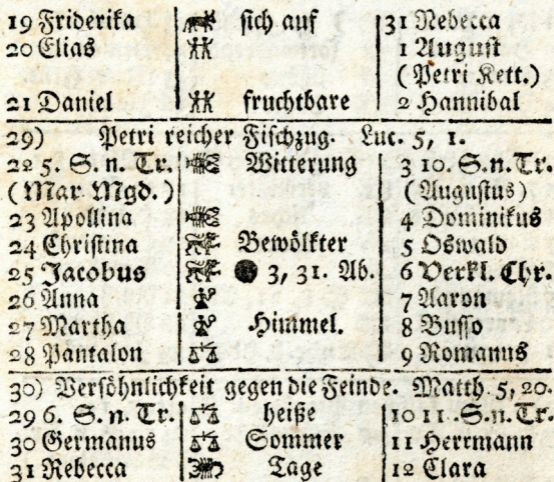 19 Friderika sich auf 31 Rebecca
20 Elias 1 August
(Petri Kett.)
21 Daniel fruchtbare 2 Hannibal
29) Petri reicher Fischzug. Luc. 5, 1.
22 5. S. n. Tr. Witterung 3 10. S. n. Tr.
(Mar. Mgd.) (Augustus)
23 Apollina 4 Dominikus
24 Christina Bewölkter 5 Oswald
25 Jacobus 3, 31. Ab. 6 Verkl. Chr.
26 Anna 7 Aaron
27 Martha Himmel. 8 Busso
28 Pantalon 9 Romanus
30) Versöhnlichkeit gegen die Feinde. Matth 5, 20.
29 6. S. n. Tr. heiße 10 11. S. n. Tr.
30 Germanus Sommer 11 Herrmann
31 Rebecca Tage 12 Clara